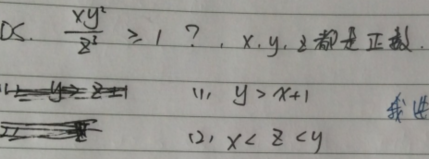 DS. xy²/z² ≥ 1 ? , x, y, z 都是正数.
(1) y > x+1
(2) x < z < y